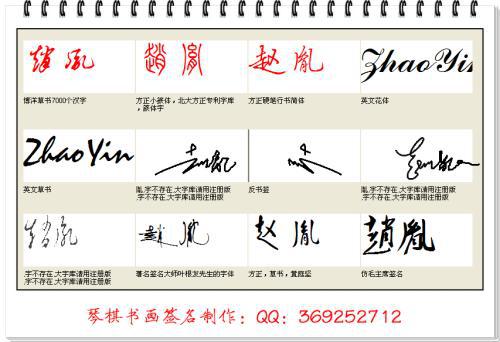 趙胤 趙胤 赵胤 ZhaoYin
博洋草书7000个汉字 方正小篆体，北大方正专利字库 方正硬笔行书简体 英文花体
，篆体字
ZhaoYin
英文草书 胤,字不存在,大字库请用注册版 反书签 胤,字不存在,大字库请用注册版
.字不存在.大字库请用注册版 .字不存在.大字库请用注册版
趙胤 趙胤 赵胤 趙胤
.字不存在.大字库请用注册版 著名签名大师叶根友先生的字体 方正，草书，黄庭坚 仿毛主席签名
.字不存在.大字库请用注册版
琴棋书画签名制作：QQ：369252712